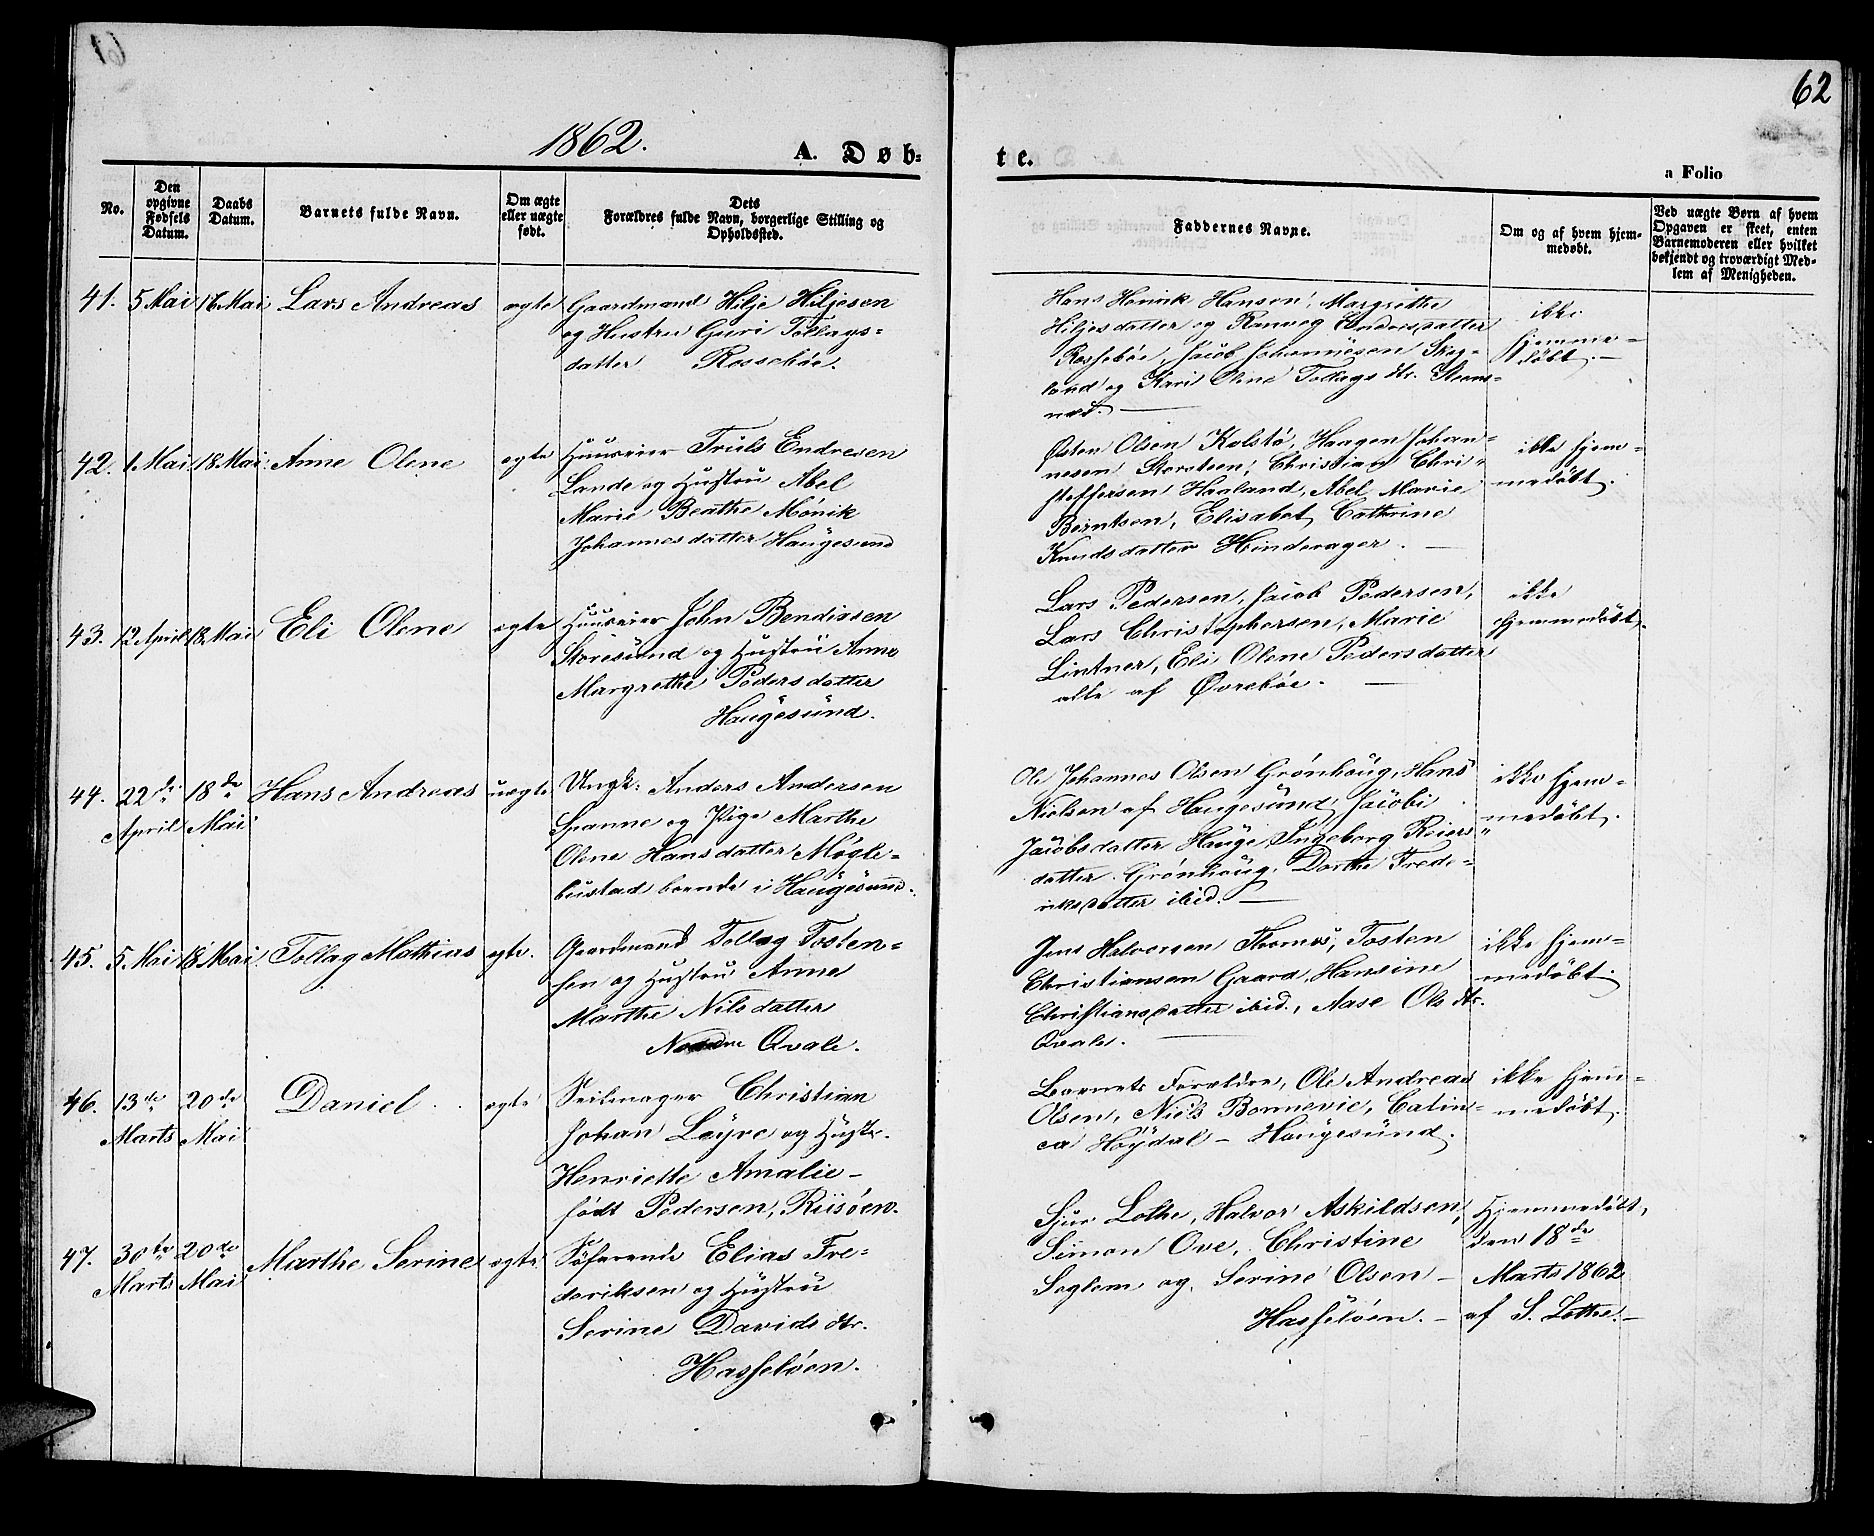 62
1862.
A. Døb-
te.
a Folio
No.
Den opgivne Fødsels Datum.
Daabs Datum.
Barnets fulde Navn.
Om ægte eller uægte født.
Dets Forældres fulde Navn, borgerlige Stilling og Opholdssted.
Faddernes Navne.
Om og af hvem hjem-
medøbt.
Ved uægte Børn af hvem
Opgaven er skeet, enten
Barnemoderen eller hvilket
bekjendt og troværdigt Med-
lem af Menigheden.
41. 5 Mai 16 Mai Lars Andreas ægte
Gaardmand Hilje Hiljesen
og Hustru Guri Tollags-
datter Rossebøe.
Hans Henrik Hansen, Margrethe
Hiljesdatter og Ranveg Endresdatter
Rossebøe, Jacob Johannesen Skog-
land og Kari Oline Tollags dtr. Steens-
næs.
ikke
hjemme-
døbt.
42. 1 Mai 18 Mai Anne Olene ægte
Huuseier Truls Endresen
Lande og Hustru Abel
Marie Beathe Mönik
Johannesdatter Haugesund
Østen Olsen Kolstø, Haagen Johan-
nesen Storsteen, Christian Chri-
stoffersen Haaland, Abel Marie
Berntsen, Elisabet Cathrine
Knudsdatter Hinderager.
ikke hjem-
medøbt.
43. 12 April 18 Mai Eli Olene ægte
Huuseier John Bendixsen
Storesund og Hustru Anne
Margrethe Pedersdatter
Haugesund.
Lars Pedersen, Jacob Pedersen,
Lars Christophersen, Marie
Lintner, Eli Olene Pedersdatter
alle af Øvrebøe.
ikke
hjemmedøbt.
44. 22de April 18de Mai Hans Andreas uægte
Ungk: Anders Andersen
Spanne og Pige Marthe
Olene Hansdatter Møgle-
bustad boende i Haugesund.
Ole Johannes Olsen Grønhaug, Hans
Nielsen af Haugesund, Jacobi
Jacobsdatter Hauge, Ingeborg Reiers-
datter Grønhaug, Dorthe Frede-
riksdatter ibid.
ikke hjem-
medøbt.
45. 5 Mai 18 Mai Tollag Mathias ægte.
Gaardmand Tollag Tosten-
sen og Hustru Anne
Marthe Nilsdatter
Nordre Qvale.
Jens Halvorsen Tornes, Tosten
Christiansen Gaard, Hansine
Christiansdatter ibid., Aase Ols dtr.
Qvale.
ikke hjem-
medøbt.
46. 13de Marts 20de Mai Daniel ægte
Seilmager Christian
Johan Løyre og Hustr.
Henriette Amalie
født Pedersen, Riisøen.
Barnets Forældre, Ole Andreas
Olsen, Niels Bonnevie, Catin-
ca Høydal – Haugesund.
ikke hjem-
medøbt.
47. 30te Marts 20de Mai Marthe Serine ægte
Søfarende Elias Fre-
deriksen og Hustru
Serine Davids dtr.
Hasseløen.
Sjur Lothe, Halvor Askildsen,
Simon Ove, Christine
Seglem og Serine Olsen –
Hasseløen. –
Hjemmedøbt,
den 18de
Marts 1862
af S. Lothe. –